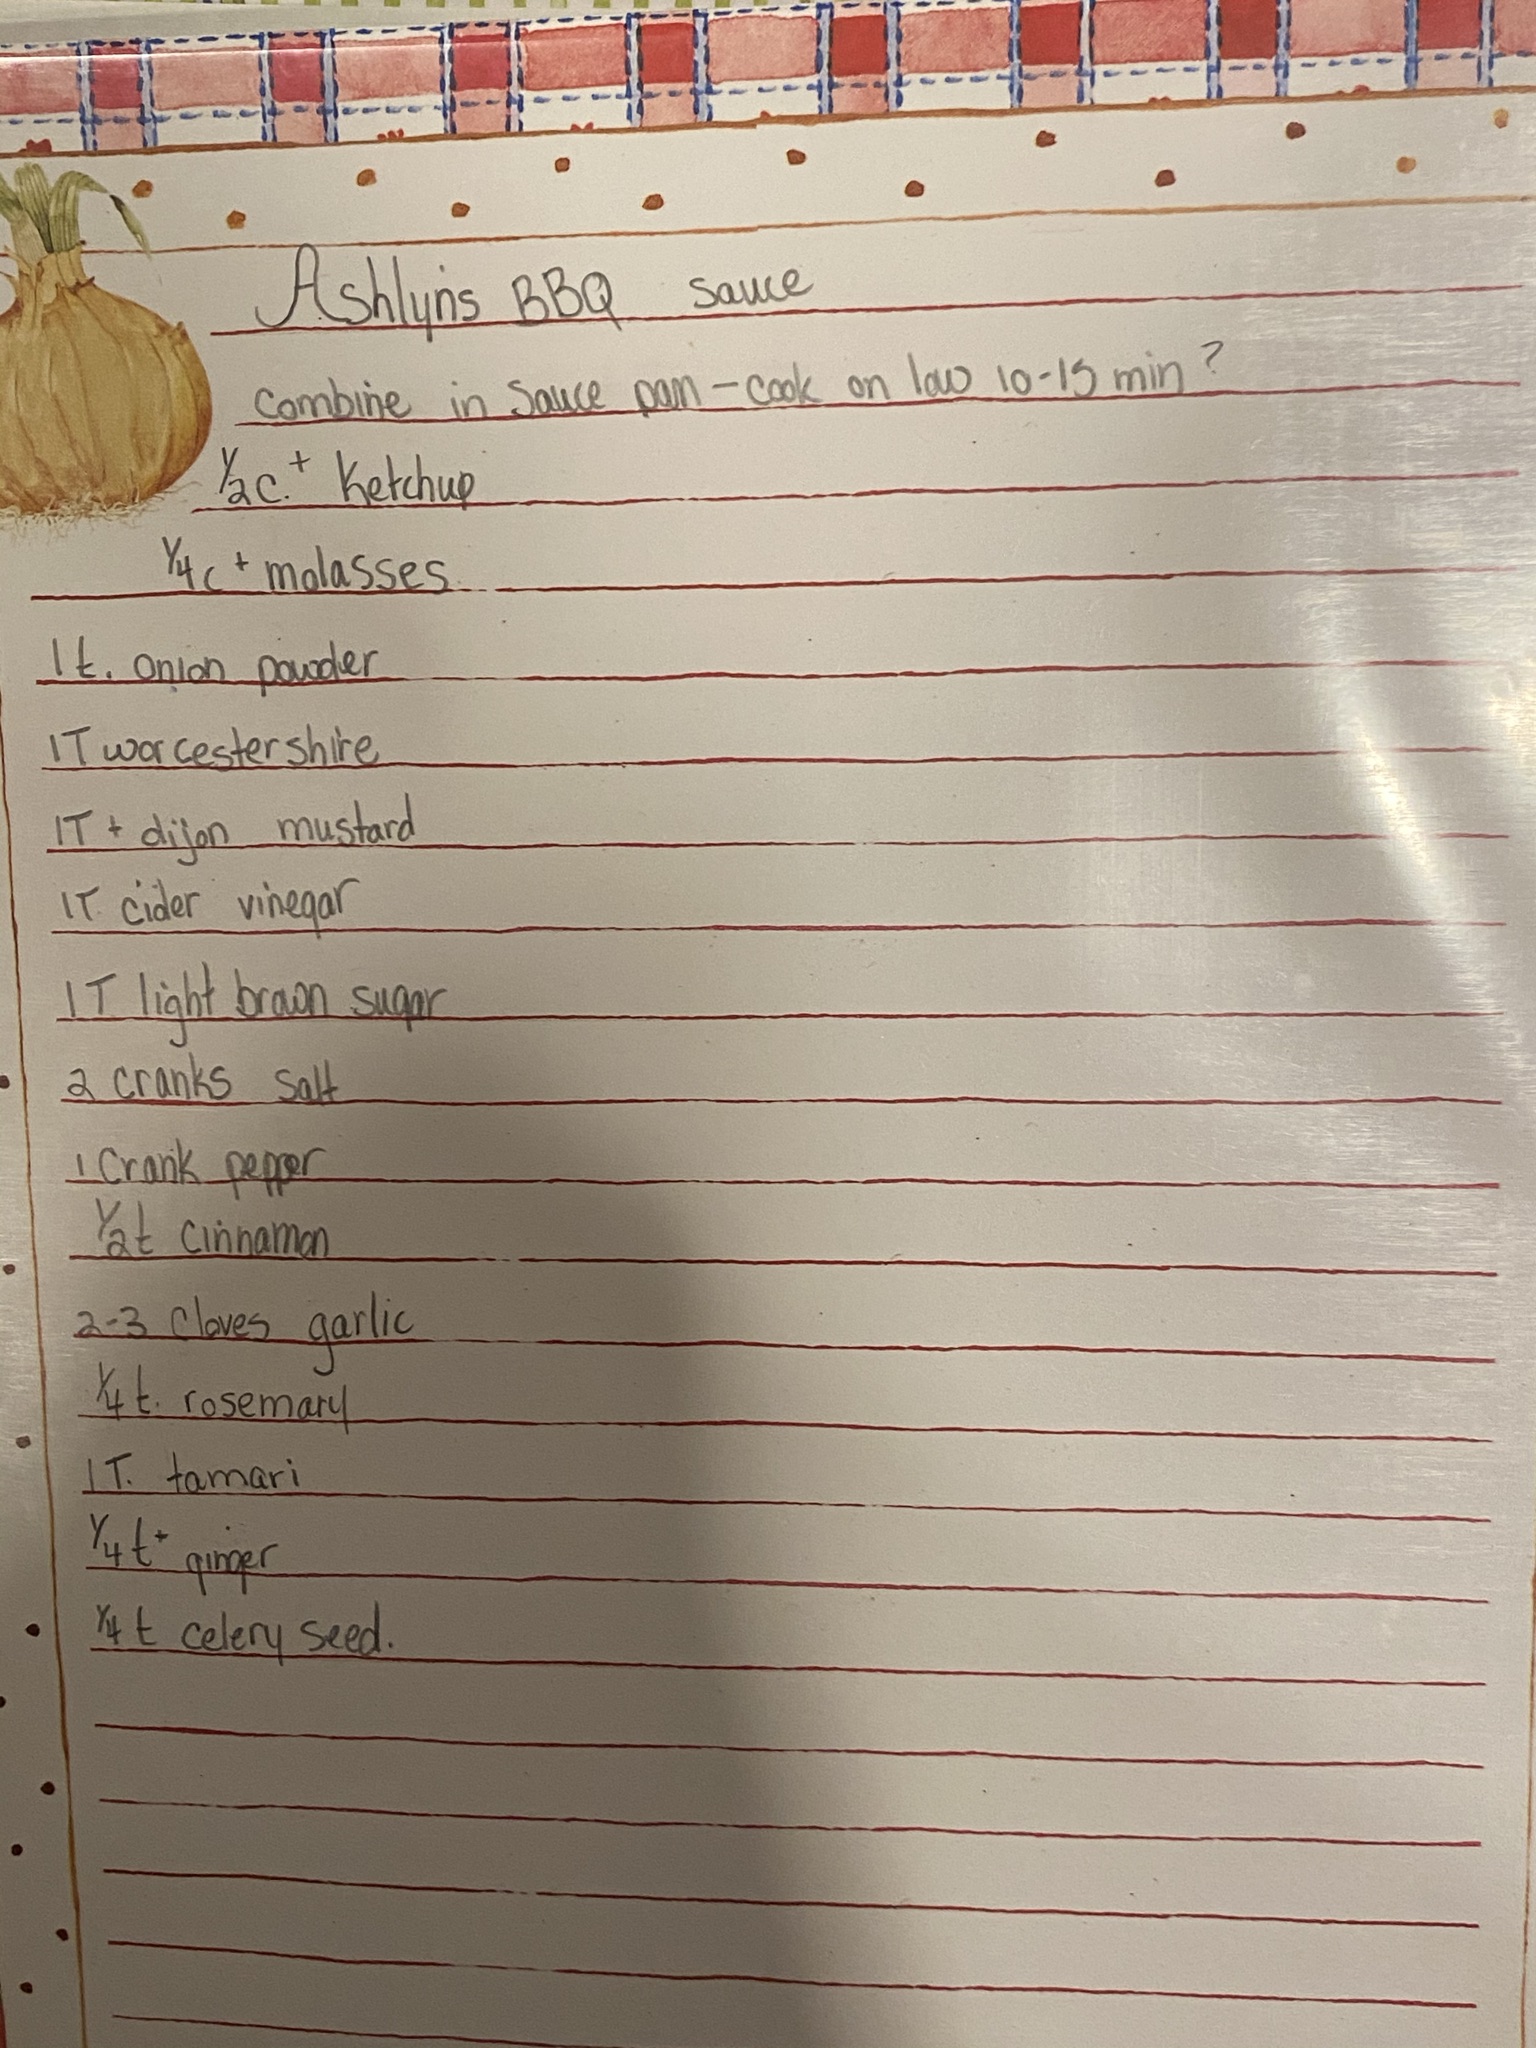 Ashlyn's BBQ sauce
Combine in sauce pan - cook on low 10-15 min?
1/2 c.+ Ketchup
1/4 c + molasses
1 t. onion powder
1T worcestershire
1T + dijon mustard
1T. cider vinegar
1 T. light brown sugar
2 cranks salt
1 Crank pepper
1/2 t cinnamon
2-3 Cloves garlic
1/4 t. rosemary
1 T. tamari
1/4 t+ ginger
1/4 t celery seed.